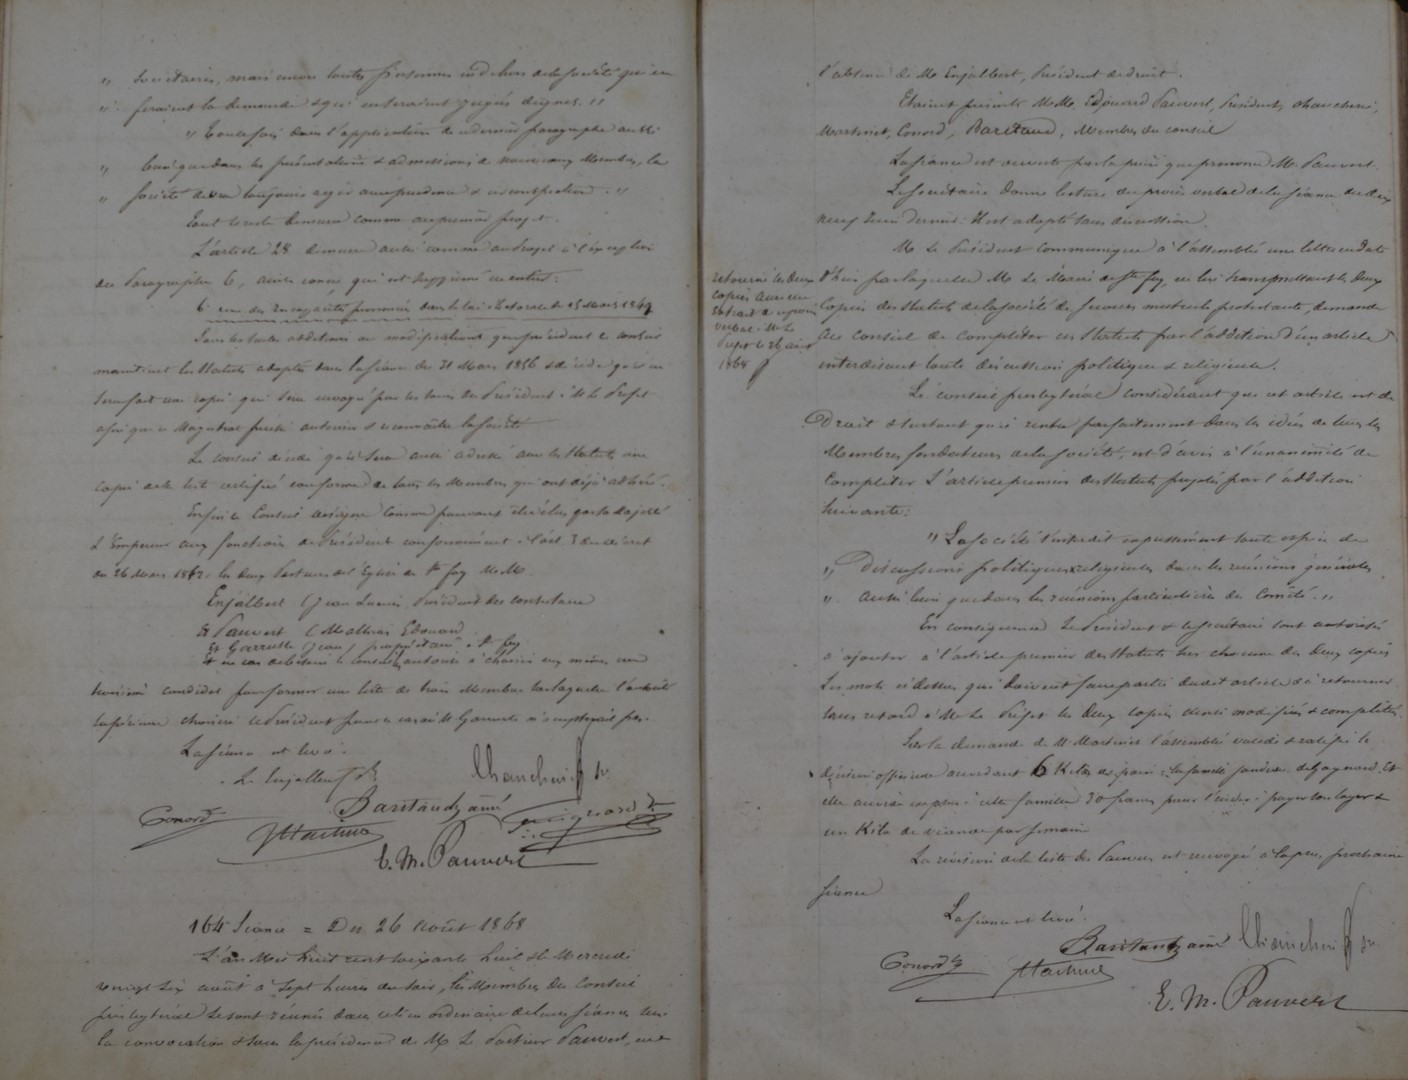 " Sociétaires, mais encore toutes personnes en dehors de la société qui en
" feraient la demande & qui en seraient jugées dignes. "
" Toutefois dans l'application de ce dernier paragraphe aussi
" bien que dans les présentations & admissions de nouveaux Membres, la
" Société devra toujours agir avec prudence & circonspection. "
Tout le reste demeure comme au premier projet.
L'article 28 demeure aussi comme au Projet à l'exception
du Paragraphe 6, ainsi conçu, qui est supprimé en entier:
6° une des incapacités prononcées dans la loi électorale du 15 Mars 1849
Sous les toutes additions ou modifications qui précèdent le conseil
maintient les Statuts adoptés dans la séance du 31 Mars 1856 & décide qu'il en
sera fait une copie qui sera envoyée par les soins du Président à M. le Préfet
afin que ce Magistrat puisse autoriser & reconnaître la Société
Le conseil décide qu'il sera aussi adressé avec les Statuts une
copie de la liste certifiée conforme de tous les Membres qui ont déjà adhéré.
Enfin le Conseil désigne comme pouvant être élus par sa Majesté
L'Empereur aux fonctions de Président conformément à l'art. 3 du décret
du 26 Mars 1852, les deux Pasteurs de l'Eglise de Ste foy M.M.
Enjalbert (Jean Louis, Président du consistoire
Et Pauvert (Mathieu Edouard
Et Garreste Jean, propriétaire à Ste foy
Et en cas de besoin le Conseil autorise à choisir eux mêmes un
troisième candidat pour former une liste de trois Membres sur laquelle l'autorité
supérieure choisira le Président pour le cas où M. n'accepterait pas.
La séance est levée.
L. Enjalbert
Chancherie
Conord
Baritaud aîné
Martinet
E. M. Pauvert
164e Séance = Du 26 Août 1868
L'an Mil huit cent soixante huit & le Mercredi
vingt six août à sept heures du soir, les Membres du Conseil
presbytéral se sont réunis dans le lieu ordinaire de leurs séances sur
la convocation & sous la présidence de M. Le Pasteur Pauvert, en
l'absence de Mr Enjalbert, Président de droit.
Etaient présents M.M. Edouard Pauvert, Président, Chancherie,
Martinet, Conord, Baritaud, Membres du conseil
La séance est ouverte par la prière que prononce M. Pauvert.
Le Secrétaire donne lecture du procès verbal de la séance du dix
neuf Juin dernier. Il est adopté sans discussion.
M. Le Président communique à l'assemblée une lettre en date
d'hier par laquelle M. Le Maire de Ste foy, en lui transmettant les deux
copies des Statuts de la Société de Secours mutuels protestante, demande
au conseil de compléter ces Statuts par l'addition d'un article
interdisant toute discussion politique & religieuse.
retourné les deux
copies avec un
extrait du procès
verbal à M. le
Préfet le 26 août
1868
Le conseil presbytéral considérant que cet article est de
Droit & surtout qu'il rentre parfaitement dans les idées de tous les
Membres fondateurs de la Société, est d'avis à l'unanimité de
compléter l'article premier des Statuts projetés par l'addition
suivante:
" La société s'interdit expressément toute espèce de
" Discussions politiques & religieuses dans les réunions générales
" aussi bien que dans les réunions particulières du Comité. "
En conséquence Le Président & le Secrétaire sont autorisés
à ajouter à l'article premier des Statuts sur chacune des deux copies
les mots ci-dessus qui doivent faire partie dudit article & à retourner
sans retard à M. Le Préfet les deux copies ainsi modifiées & complétées.
Sur la demande de M. Martinet l'assemblée valide & ratifie la
décision officieuse accordant 6 Kilos de pain à la famille de Gaynard. Et
elle accorde en plus à cette famille 30 francs pour l'aider à payer son loyer &
un Kilo de viande par semaine
La révision de la liste des Pauvres est renvoyée à la plus prochaine
séance
La séance est levée.
Baritaud aîné
Chancherie
Conord
Martinet
E. M. Pauvert